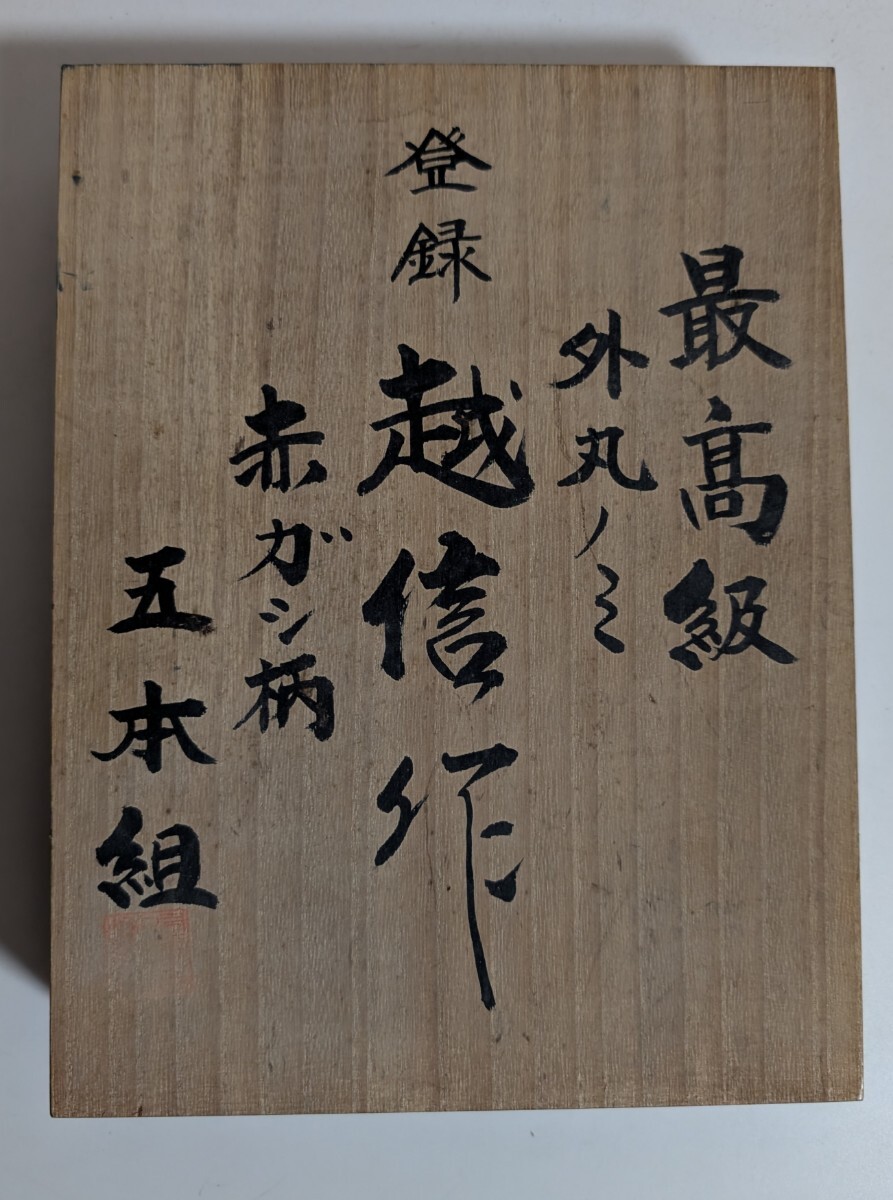 最髙級
外丸ノミ
登録
越信作
赤ガシ柄
五本組